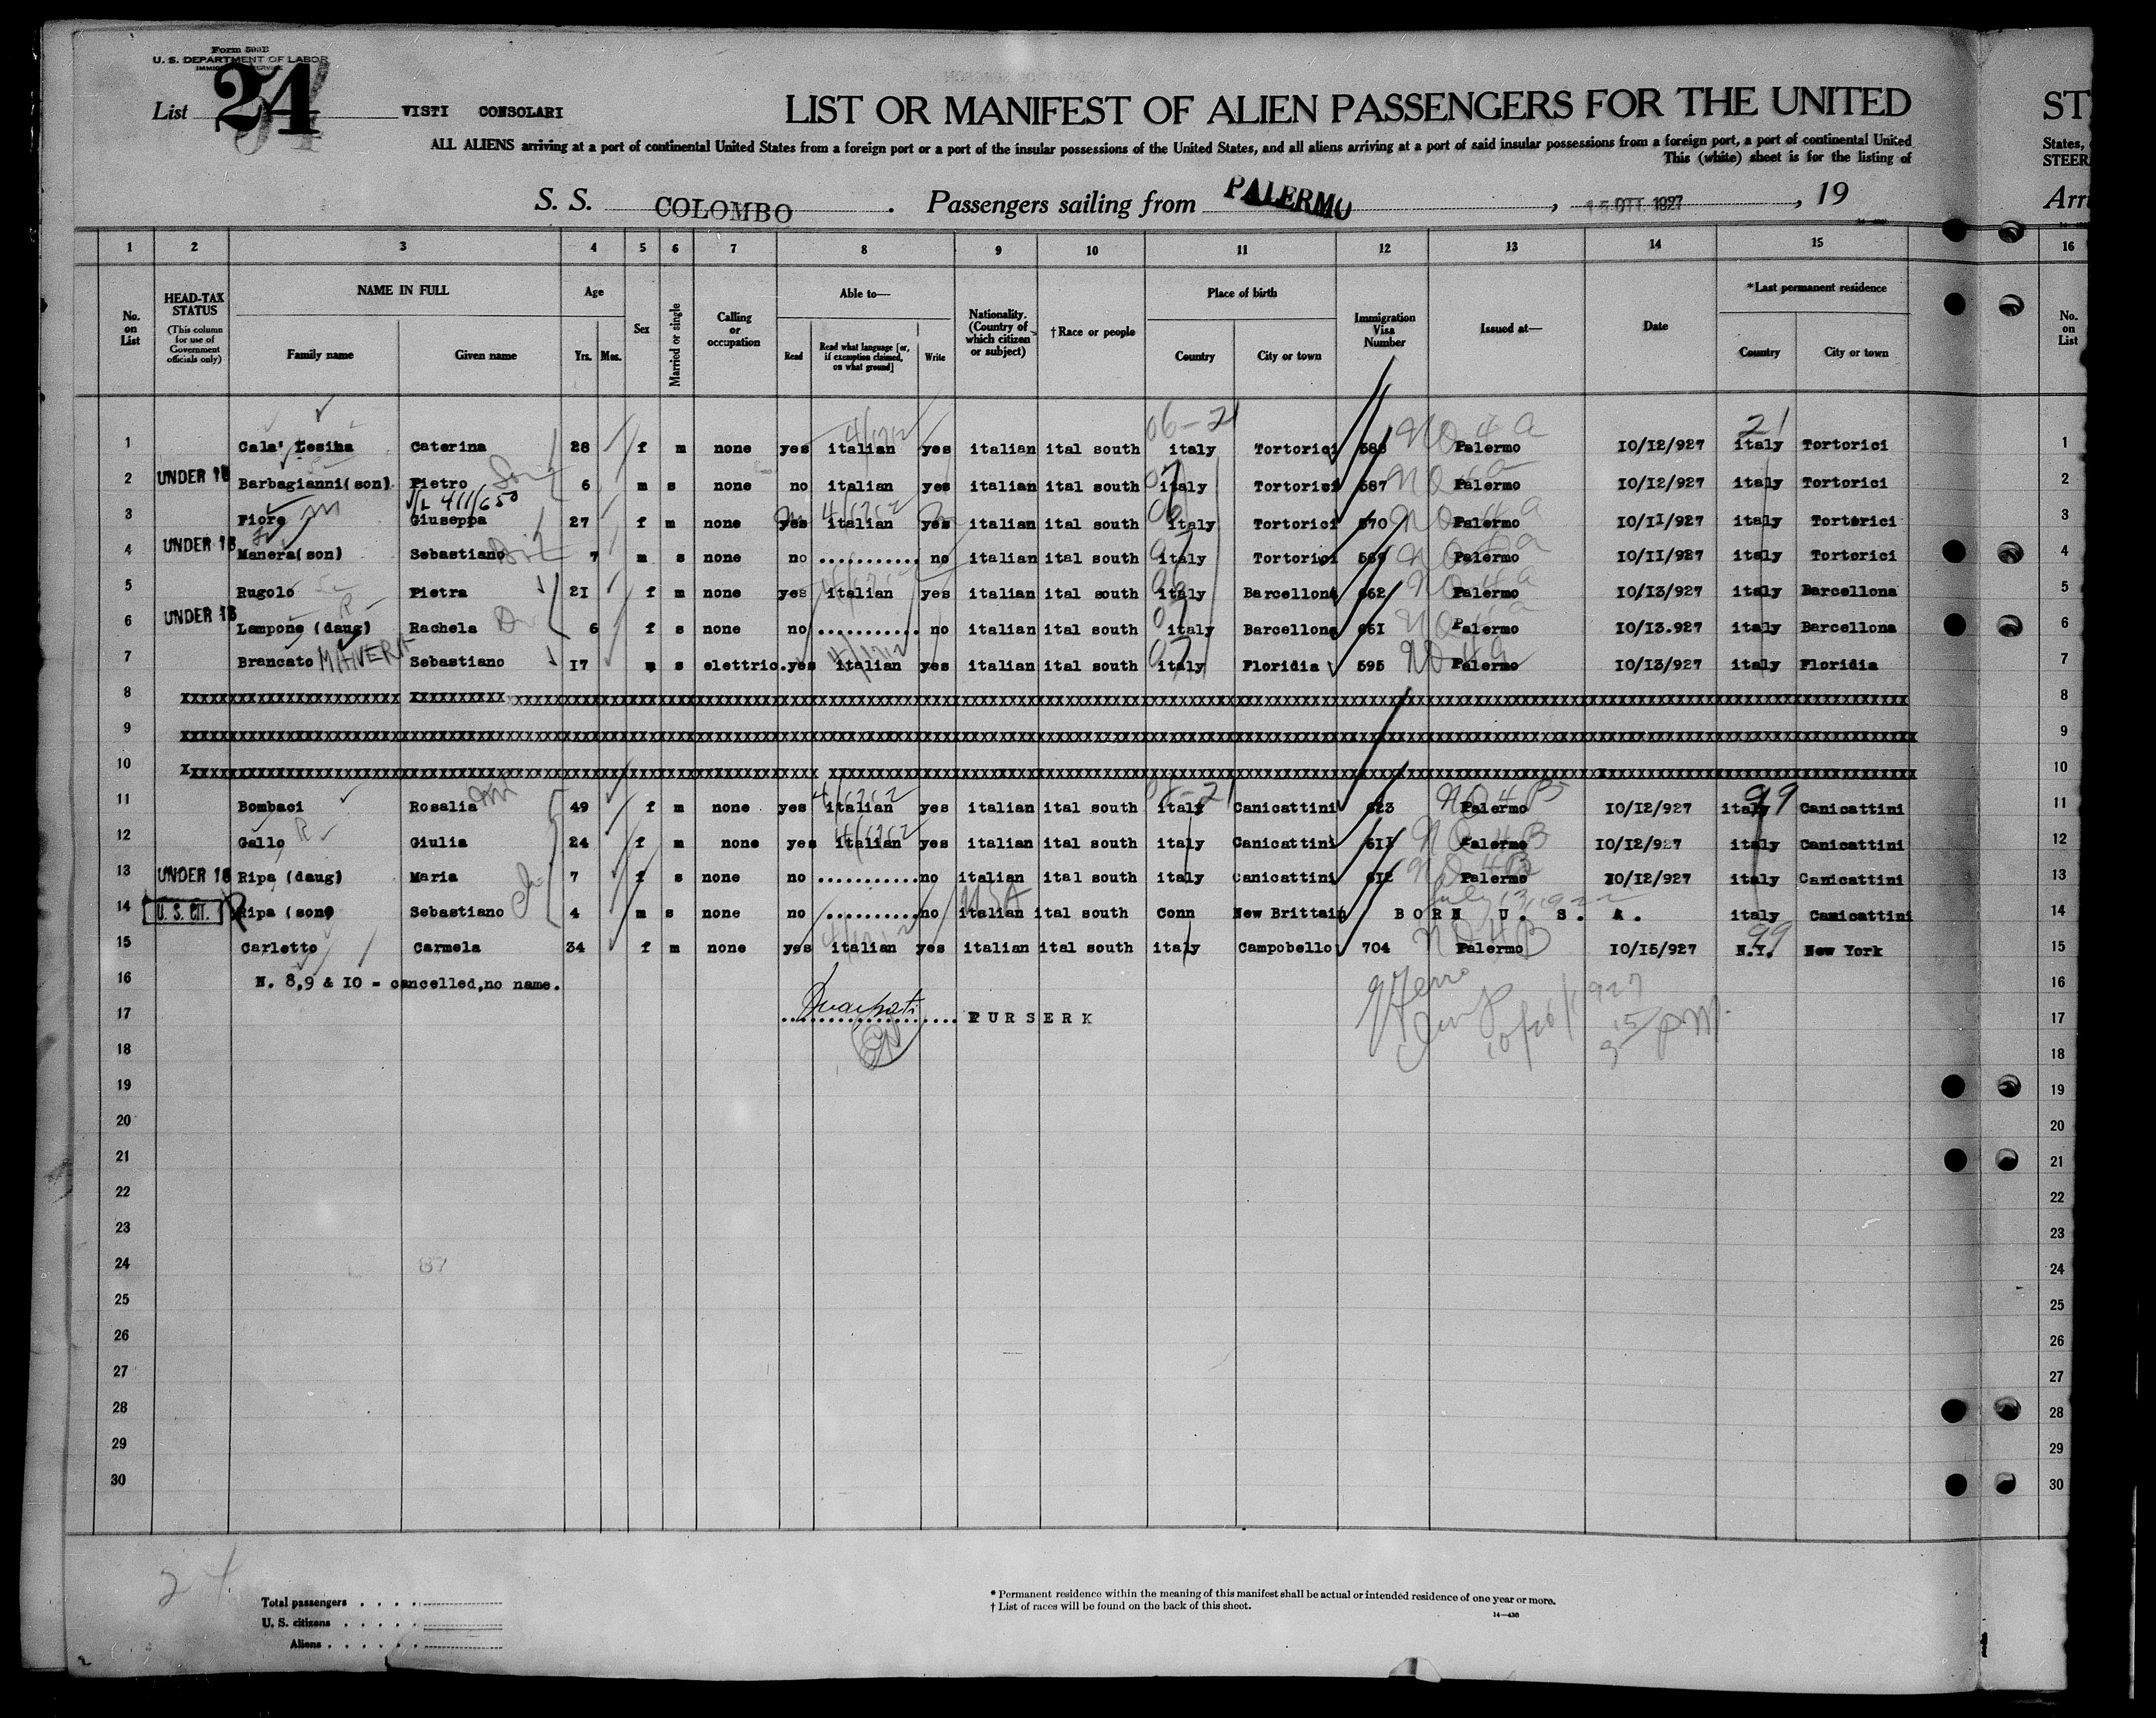 Form 599B
U. S. DEPARTMENT OF LABOR
List 24 VISTI CONSOLARI
LIST OR MANIFEST OF ALIEN PASSENGERS FOR THE UNITED ST
ALL ALIENS arriving at a port of continental United States from a foreign port or a port of the insular possessions of the United States, and all aliens arriving at a port of said insular possessions from a foreign port, a port of continental United States,
This (white) sheet is for the listing of STEER
S. S. COLOMBO. Passengers sailing from PALERMO, 15 OTT. 1927, 19 Arri
1 2 3 4 5 6 7 8 9 10 11 12 13 14 15 16
No. on List
HEAD-TAX STATUS (This column for use of Government officials only)
NAME IN FULL Family name Given name
Age Yrs. Mos.
Sex
Married or single
Calling or occupation
Able to— Read Read what language [or, if exemption claimed, on what ground] Write
Nationality. (Country of which citizen or subject)
†Race or people
Place of birth Country City or town
Immigration Visa Number
Issued at—
Date
*Last permanent residence Country City or town
No. on List
06-21 21
1 Cala' Lesina Caterina 28 f m none yes italian yes italian ital south italy Tortorici 588 Palermo 10/12/927 italy Tortorici 1
2 UNDER 16 Barbagianni(son) Pietro 6 m s none no italian yes italian ital south italy Tortorici 587 Palermo 10/12/927 italy Tortorici 2
3 Fiore Giuseppa 27 f m none yes italian yes italian ital south italy Tortorici 570 Palermo 10/11/927 italy Tortorici 3
4 UNDER 16 Manera(son) Sebastiano 7 m s none no ........... no italian ital south italy Tortorici 569 Palermo 10/11/927 italy Tortorici 4
5 Rugolo Pietra 21 f m none yes italian yes italian ital south italy Barcellona 662 Palermo 10/13/927 italy Barcellona 5
6 UNDER 16 Lampone (daug) Rachela 6 f s none no ........... no italian ital south italy Barcellona 661 Palermo 10/13.927 italy Barcellona 6
7 Brancato Sebastiano 17 m s elettric. yes italian yes italian ital south italy Floridia 595 Palermo 10/13/927 italy Floridia 7
8 8
9 9
10 10
11 Bombaci Rosalia 49 f m none yes italian yes italian ital south italy Canicattini 623 Palermo 10/12/927 italy Canicattini 11
12 Gallo Giulia 24 f m none yes italian yes italian ital south italy Canicattini 611 Palermo 10/12/927 italy Canicattini 12
13 UNDER 16 Ripa (daug) Maria 7 f s none no ........... no italian ital south italy Canicattini 612 Palermo 10/12/927 italy Canicattini 13
14 U. S. CIT. Ripa (son) Sebastiano 4 m s none no ........... no italian USA ital south Conn New Brittain BORN U. S. A. italy Canicattini 14
15 Carletto Carmela 34 f m none yes italian yes italian ital south italy Campobello 704 Palermo 10/15/927 N.Y. New York 15
16 N. 8,9 & 10 = cancelled,no name. 16
17 PURSERK 17
18 18
19 19
20 20
21 21
22 22
23 23
24 24
25 25
26 26
27 27
28 28
29 29
30 30
24
Total passengers
U. S. citizens
Aliens
* Permanent residence within the meaning of this manifest shall be actual or intended residence of one year or more.
† List of races will be found on the back of this sheet.
14—430